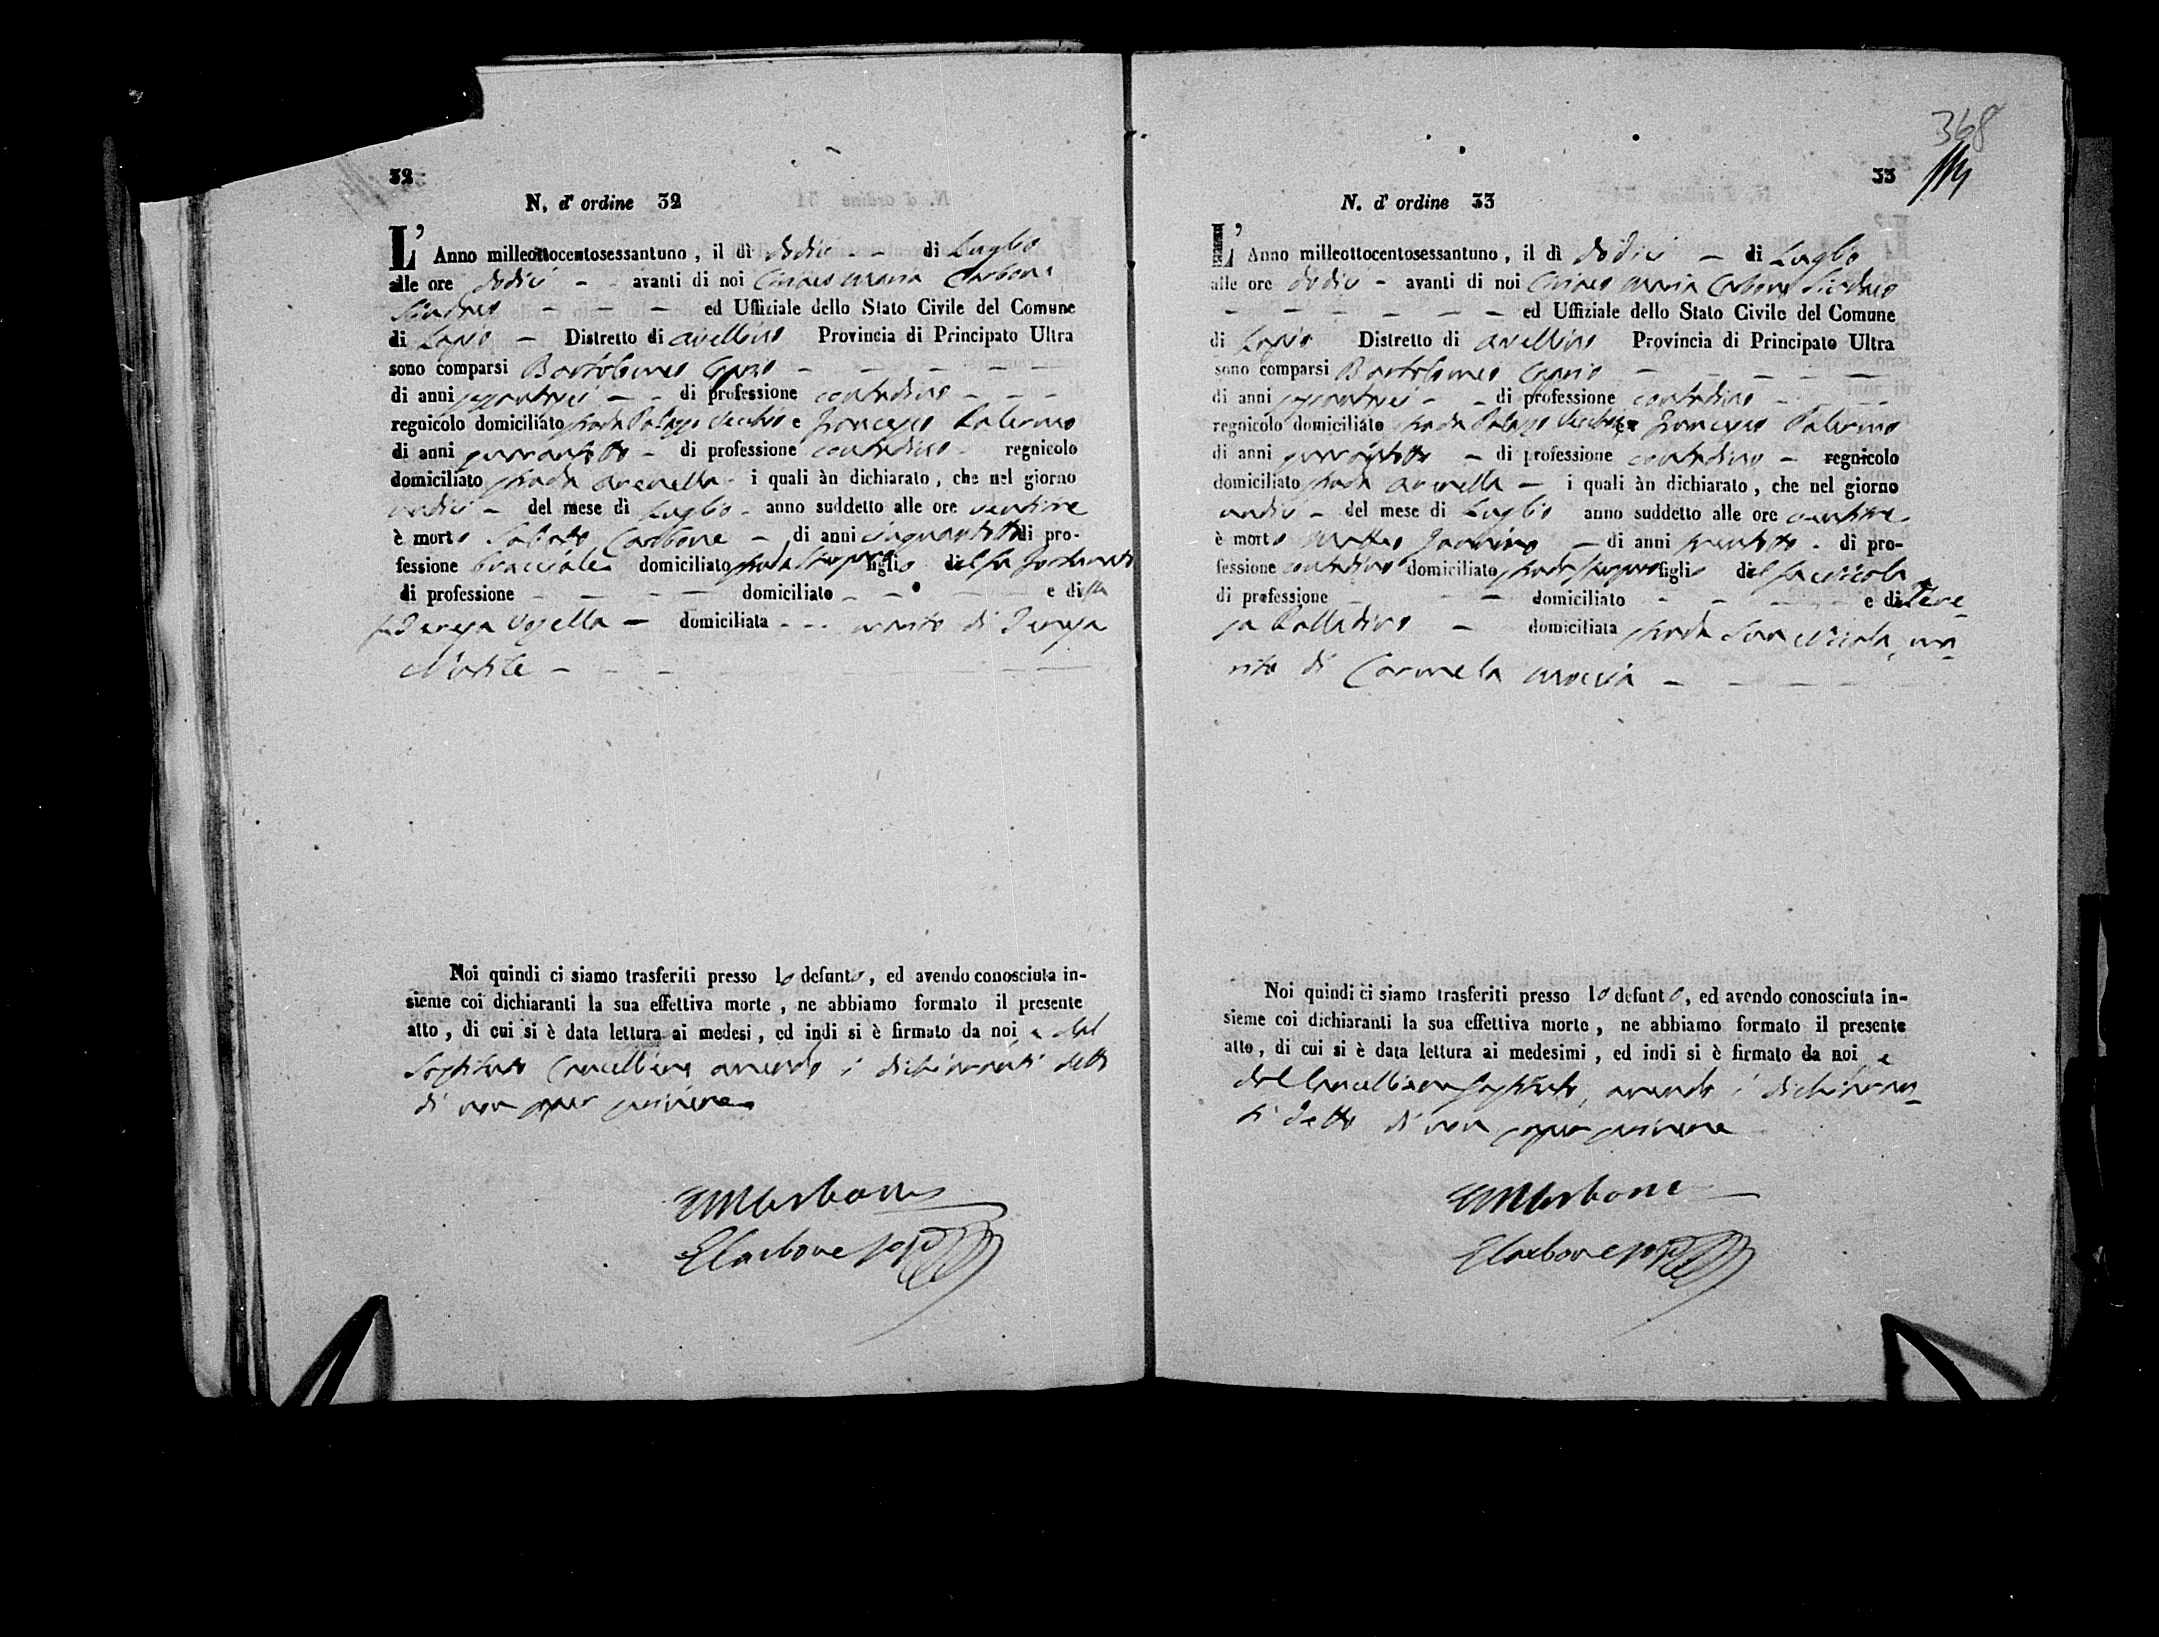 32
N. d' ordine 32
L' Anno milleottocentosessantuno , il dì dodici - - di Luglio
alle ore dodici - - avanti di noi Maria Carbone
Sindaco - - - ed Uffiziale dello Stato Civile del Comune
di Lapio - Distretto di Avellino Provincia di Principato Ultra
sono comparsi Bartolomeo - - - - -
di anni - - di professione contadino - - -
regnicolo domiciliato strada Palazzo Vecchio e Francesco Palermo
di anni quarantotto - di professione contadino - regnicolo
domiciliato strada Arenella - i quali àn dichiarato , che nel giorno
undici - del mese di Luglio - anno suddetto alle ore ventitre
è morto Sabato Carbone - di anni cinquantotto di pro-
fessione bracciale domiciliato strada figlio del fu Fortunato
di professione - - - - domiciliato - - - e di fu
Teresa - domiciliata - - - marito di Teresa
- - - - - -
Noi quindi ci siamo trasferiti presso lo defunto , ed avendo conosciuta in-
sieme coi dichiaranti la sua effettiva morte , ne abbiamo formato il presente
atto , di cui si è data lettura ai medesi , ed indi si è firmato da noi e dal
Sostituto Cancelliere avendo i dichiaranti detto
di non saper scrivere
Carbone
Carbone
368
33
N. d' ordine 33
L' Anno milleottocentosessantuno , il dì dodici - di Luglio
alle ore dodici - avanti di noi Maria Carbone Sindaco
- - - - - - ed Uffiziale dello Stato Civile del Comune
di Lapio Distretto di Avellino Provincia di Principato Ultra
sono comparsi Bartolomeo - - - - -
di anni - - di professione contadino - - -
regnicolo domiciliato strada Palazzo Vecchio e Francesco Palermo
di anni quarantotto - di professione contadino - regnicolo
domiciliato strada Arenella - i quali àn dichiarato , che nel giorno
undici - del mese di Luglio anno suddetto alle ore ventitre
è morto Matteo - di anni trentotto - di pro-
fessione contadino domiciliato strada figlio del fu Nicola
di professione - - - domiciliato - - - - e di Tere-
sa Palladino - domiciliata strada San Nicola, ma-
rito di Carmela Moccia - - - - -
Noi quindi ci siamo trasferiti presso lo defunto , ed avendo conosciuta in-
sieme coi dichiaranti la sua effettiva morte , ne abbiamo formato il presente
atto , di cui si è data lettura ai medesimi , ed indi si è firmato da noi e
dal Cancelliere sostituto, avendo i dichiaran-
ti detto di non saper scrivere
Carbone
Carbone